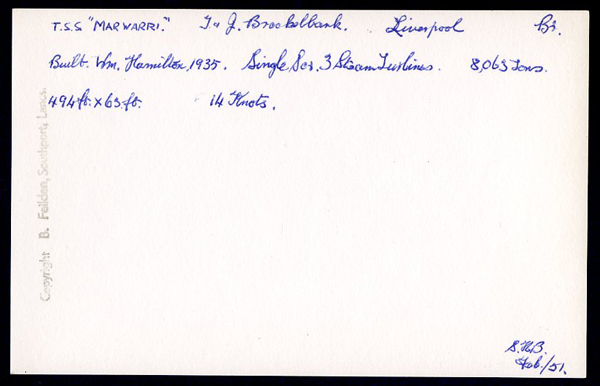 T.S.S. "MARWARRI." T & J. Brocklebank. Liverpool Br.
Built. Wm. Hamilton, 1935. Single Scr. 3 Steam Turbines. 8,063 Tons.
494 ft. x 63 ft. 14 Knots.
Copyright B. Feilden, Southport, Lancs.
S.H.B.
Feb./51.